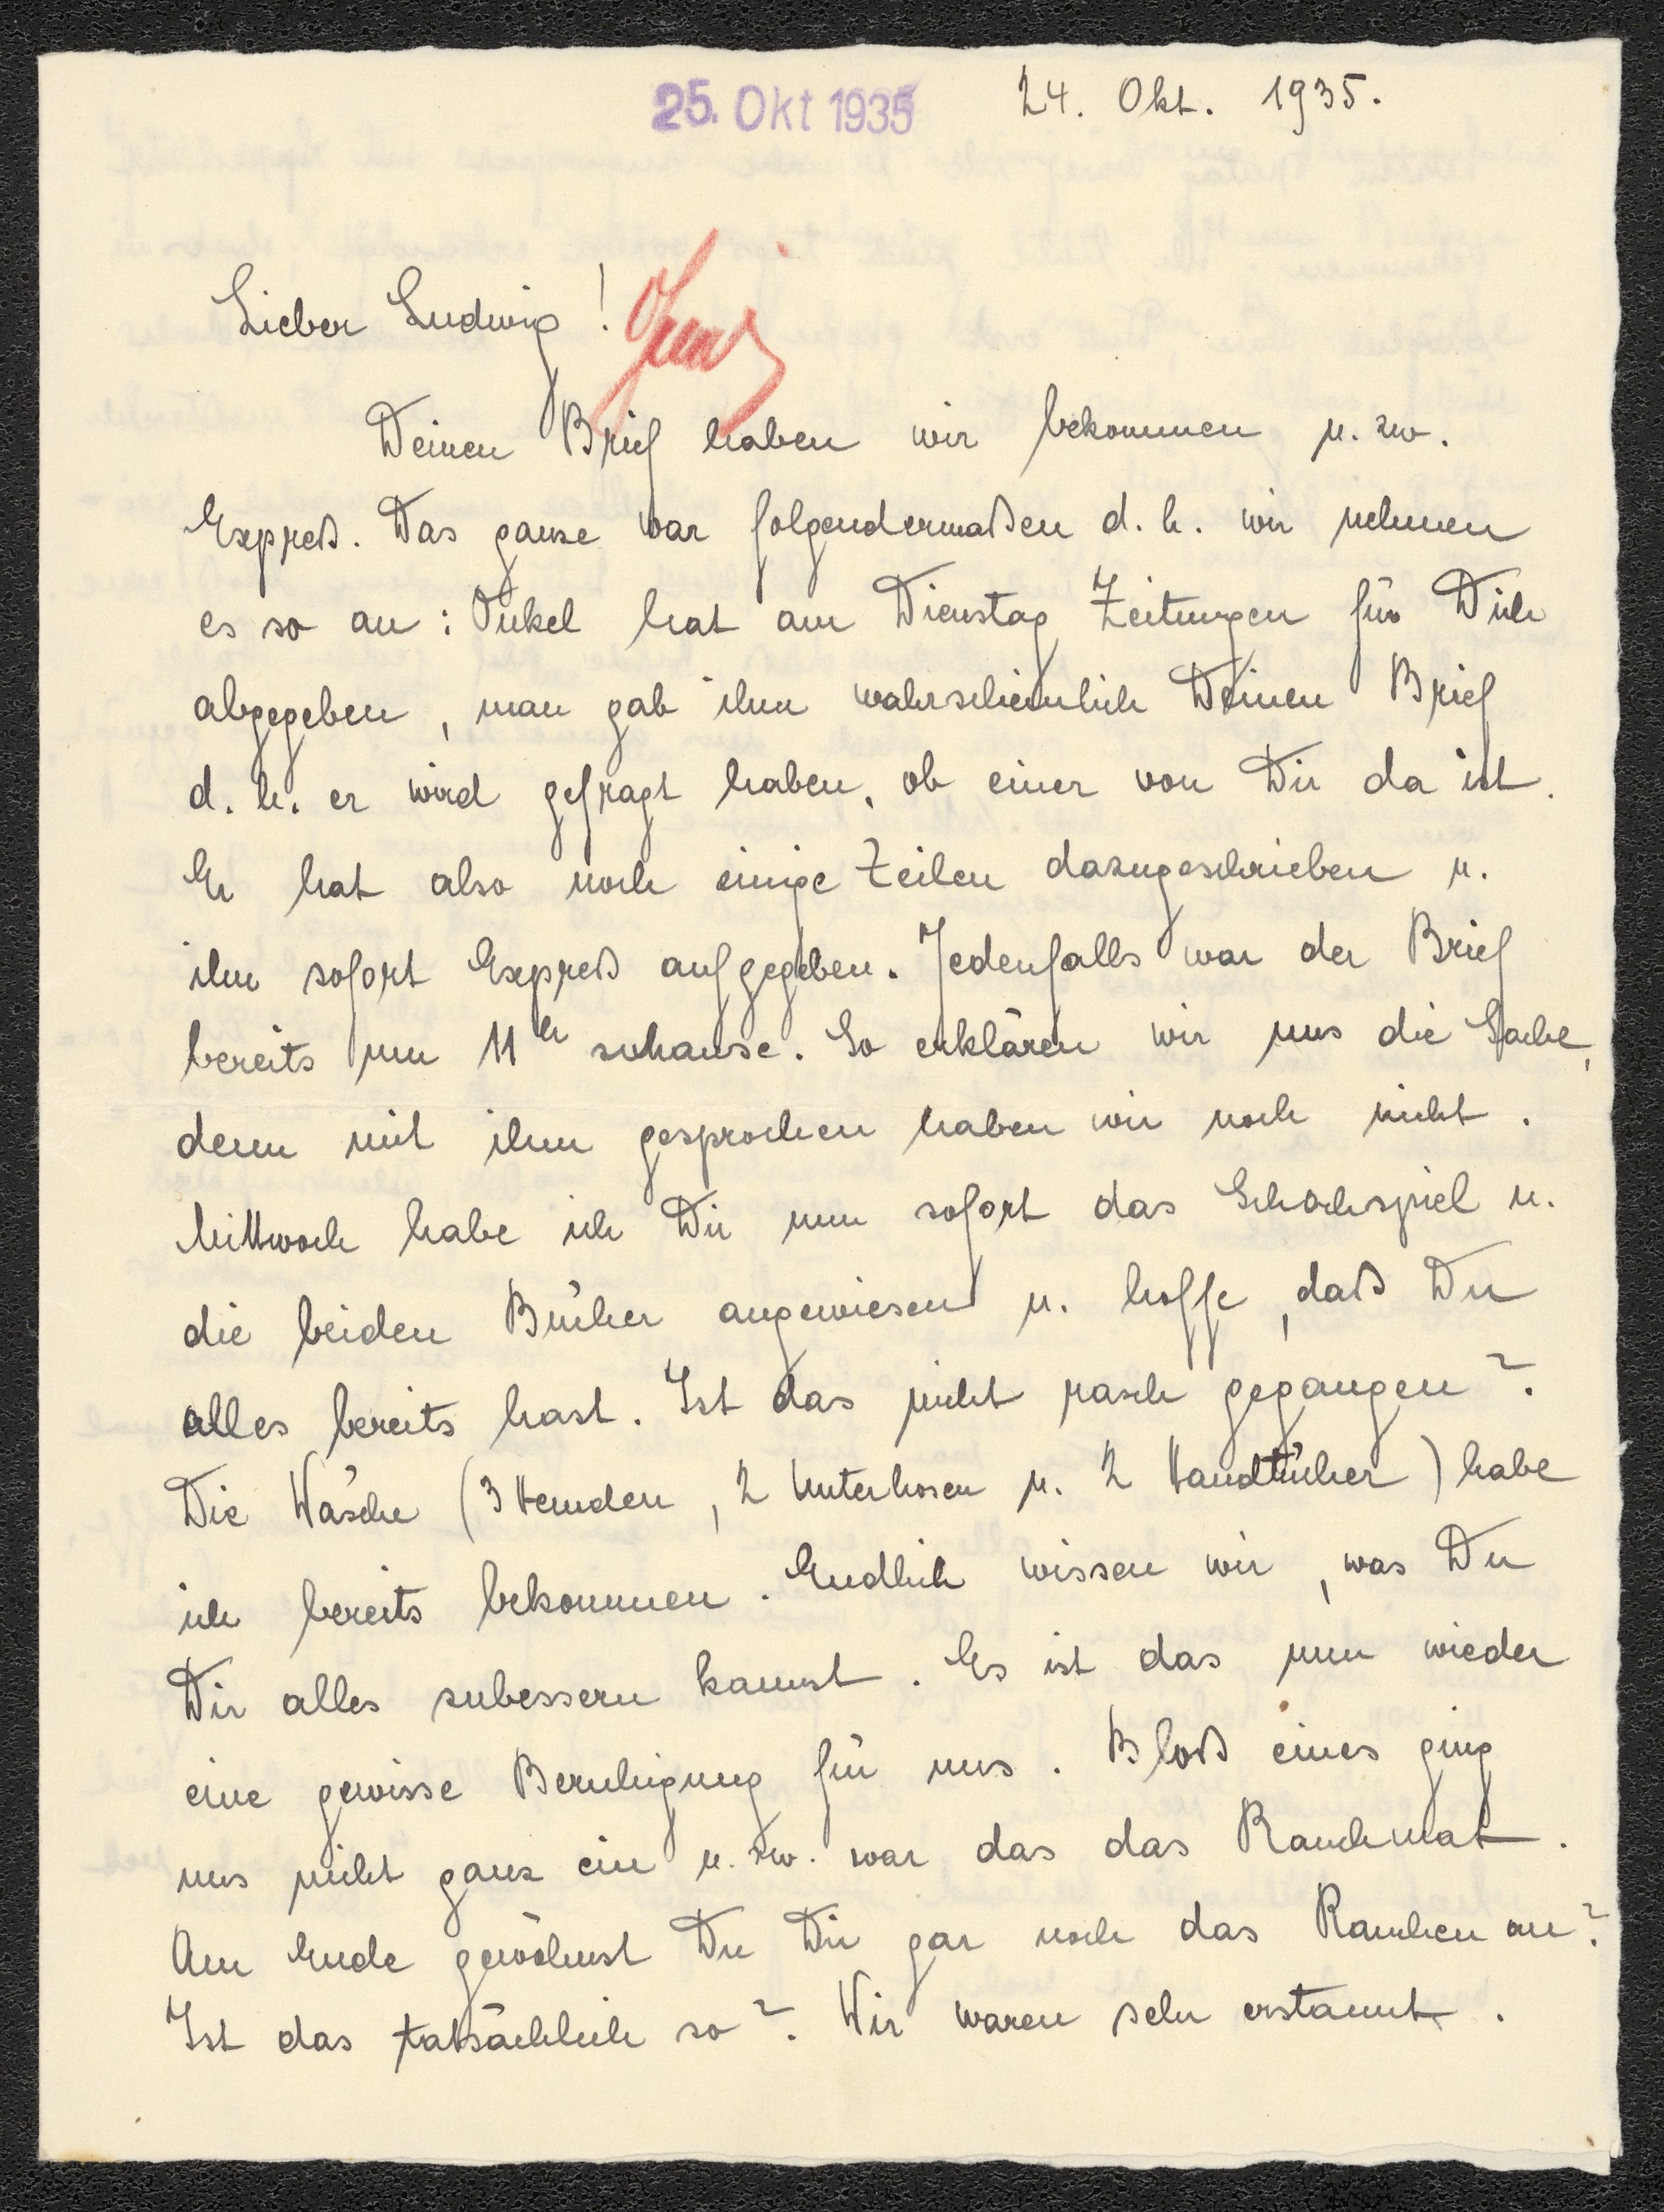 25. Okt 1935
24. Okt. 1935.
Lieber Ludwig!
Deinen Brief haben wir bekommen u. zw.
Expreß. Das ganze war folgendermaßen d. h. wir nehmen
es so an: Onkel hat am Dienstag Zeitungen für Dich
abgegeben, man gab ihm wahrscheinlich Deinen Brief
d. h. er wird gefragt haben, ob einer von Dir da ist.
Er hat also noch einige Zeilen dazugeschrieben u.
ihn sofort Expreß aufgegeben. Jedenfalls war der Brief
bereits um 11h zuhause. So erklären wir uns die Sache,
denn mit ihm gesprochen haben wir noch nicht.
Mittwoch habe ich Dir nun sofort das Schachspiel u.
die beiden Bücher angewiesen u. hoffe, daß Du
alles bereits hast. Ist das nicht rasch gegangen?
Die Wäsche (3 Hemden, 2 Unterhosen u. 2 Handtücher) habe
ich bereits bekommen. Endlich wissen wir, was Du
Dir alles zubessern kannst. Es ist das nun wieder
eine gewisse Beruhigung für uns. Bloß eines ging
uns nicht ganz ein u. zw. war das das Rauchmat.
Am Ende gewöhnst Du Dir gar noch das Rauchen an?
Ist das tatsächlich so? Wir waren sehr erstaunt.